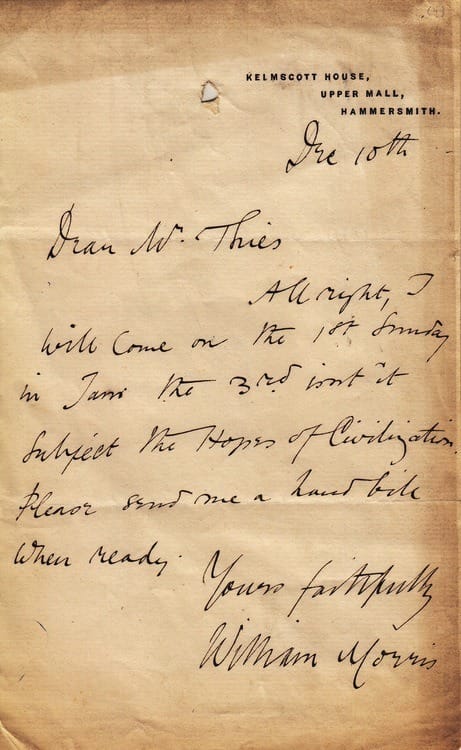 KELMSCOTT HOUSE,
UPPER MALL,
HAMMERSMITH.
Dec 10th
Dear Mr. Thies
All right, I
will come on the 1st Sunday
in Jany the 3rd isnt it
Subject the Hopes of Civilization.
Please send me a hand bill
when ready.
Yours faithfully
William Morris